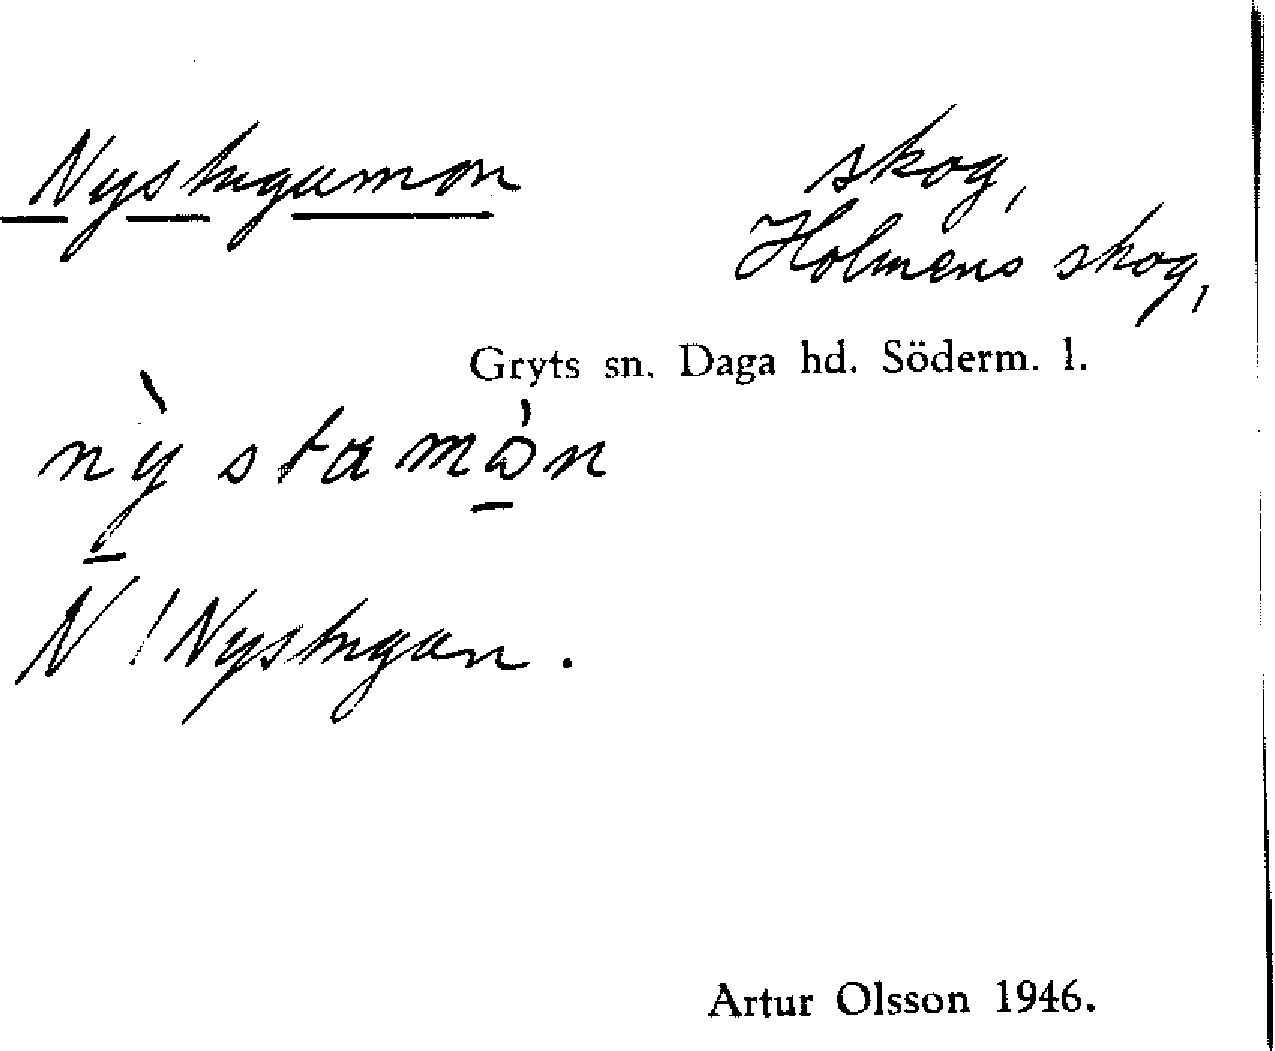 Nystugumon
skog,
Holmens skog,
Gryts sn. Daga hd. Söderm. l.
nỳ̠stamò̠n
N! Nystugan.
Artur Olsson 1946.